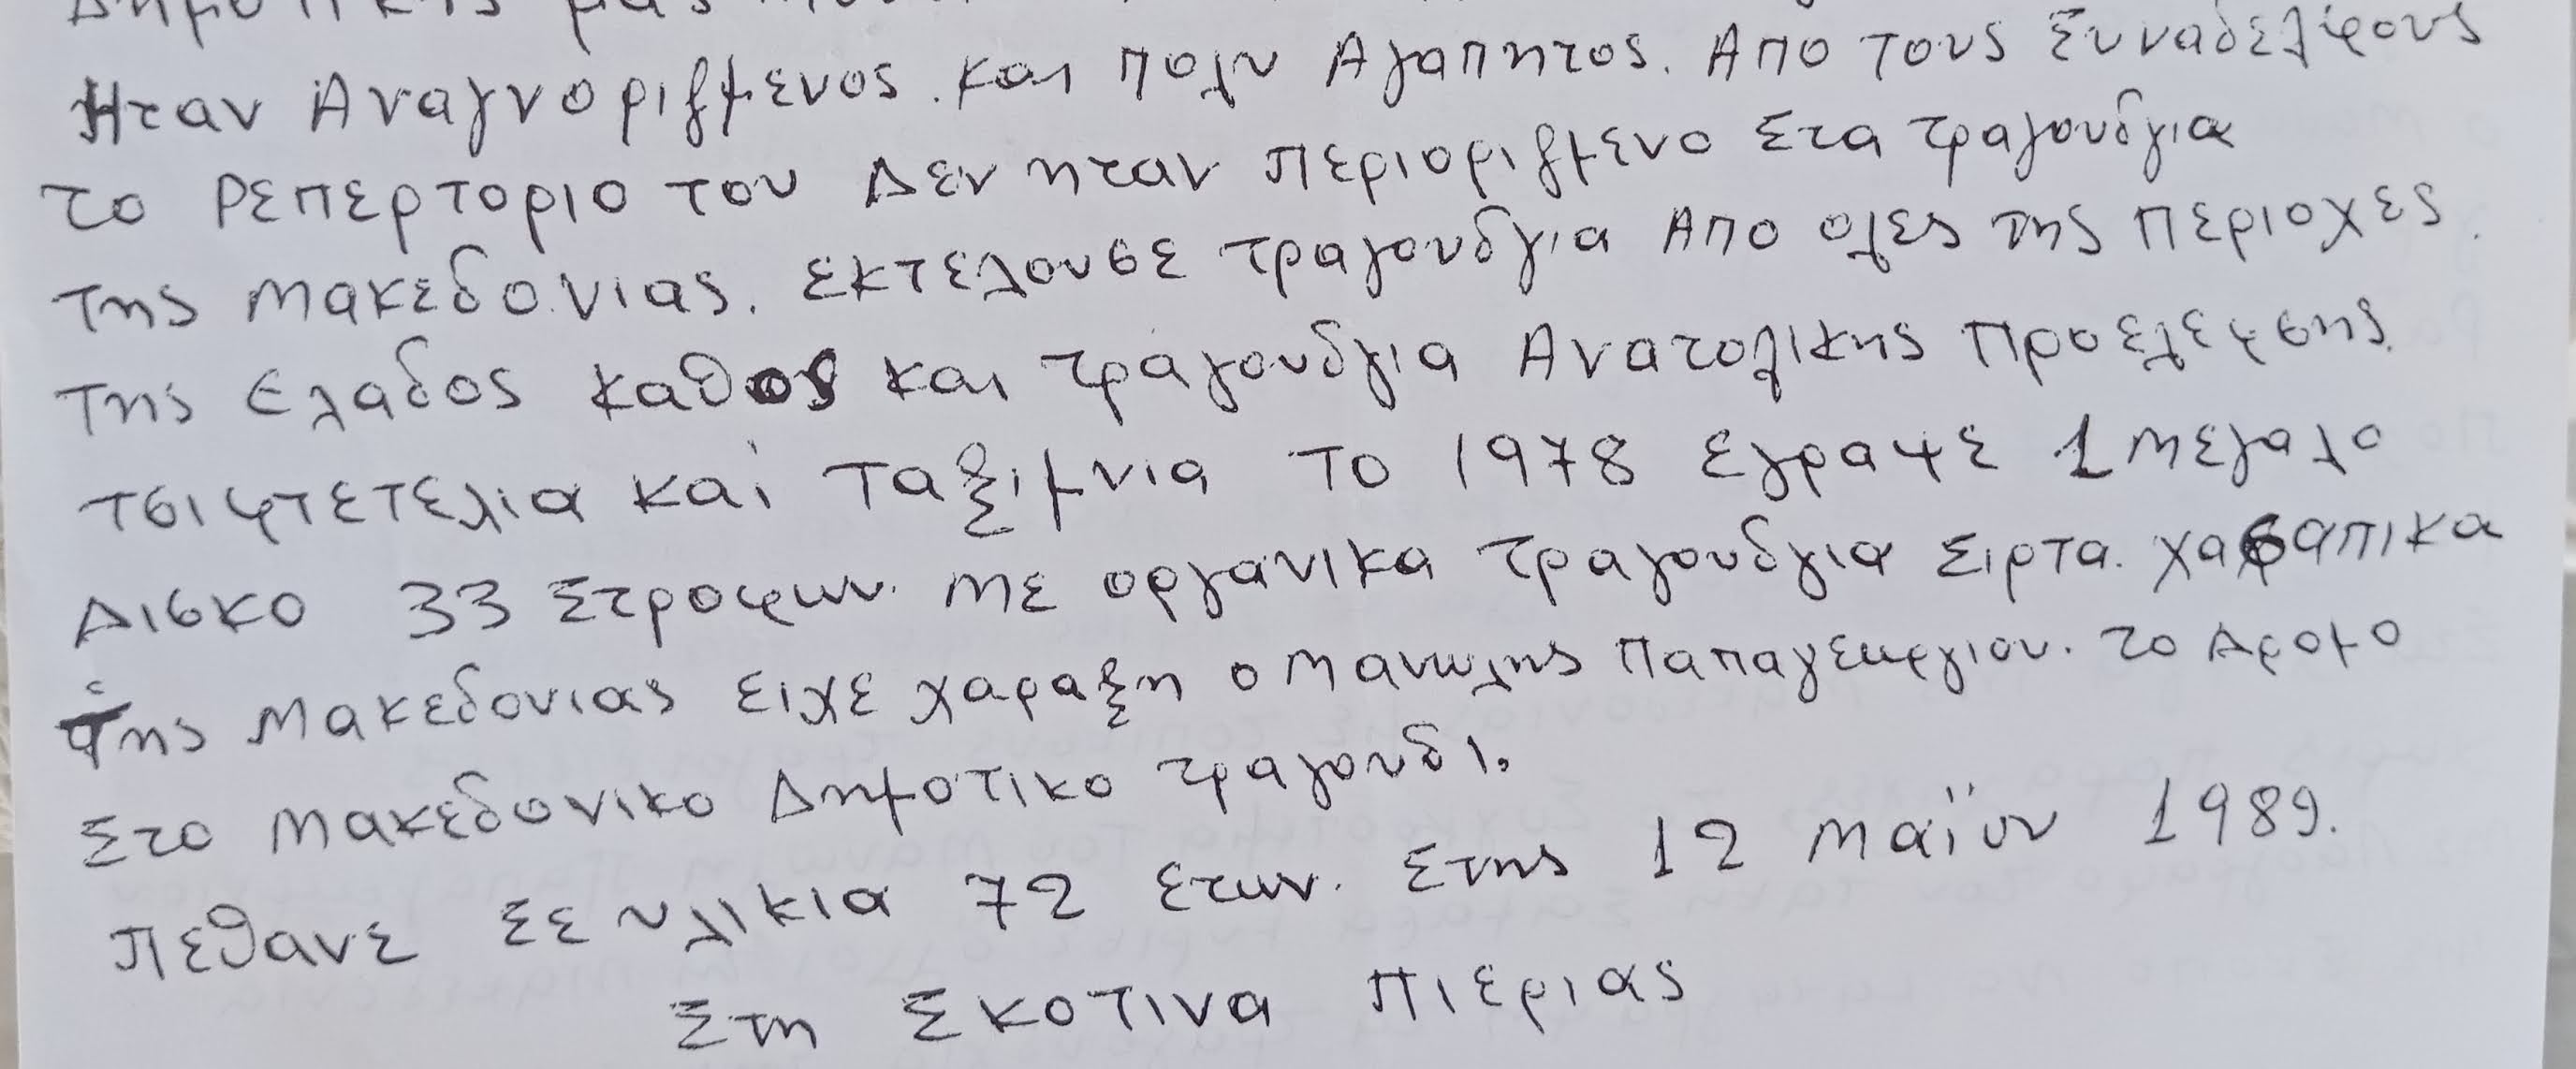 Δημοτικής μας
Ηταν Αναγνοριςμενος. και πολυ Αγαπητος. Απο τους Συναδελφους
το Ρεπερτοριο του Δεν ηταν περιοριςμενο Στα τραγουδγια
της Μακεδονιας. Εκτελουσε τραγουδγια Απο ολες της περιοχες.
της Ελαδος καθος και τραγουδγια Ανατολικης προελευσης.
τσιφτετελια και ταξιμνια το 1978 Εγραψε 1 μεγαλο
Δισκο 33 Στροφων. με οργανικα τραγουδγια Σιρτα. χασαπικα
της Μακεδονιας ειχε χαραξη ο Μανωλης Παπαγεωργιου. το Δρομο
Στο Μακεδονικο Δημοτικο τραγουδι.
πεθανε σε ηλικια 72 ετων. Στης 12 Μαϊου 1989.
Στη Σκοτινα Πιεριας